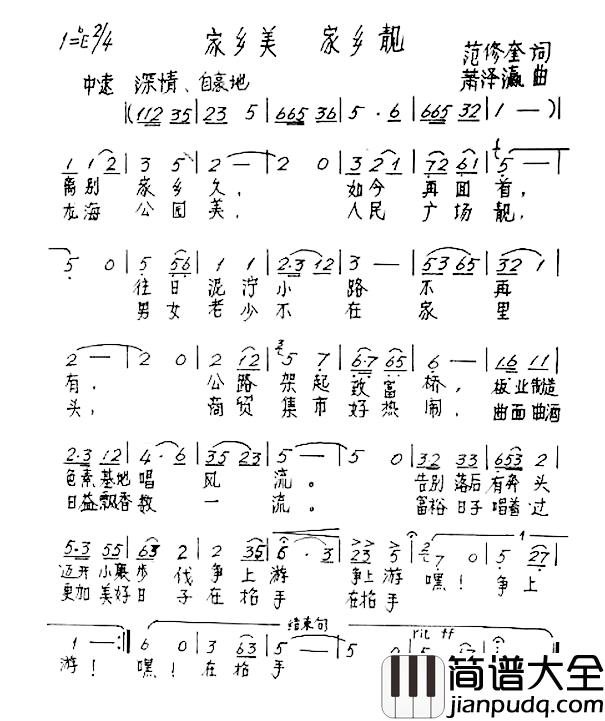 1=ᵇE 2/4 家乡美 家乡靓
范修奎 词
中速 深情、自豪地
萧泽瀛 曲
|(112 35|23 5|665 36|5·6|665 32|1—)|
1 12|3 5|2—|2 0|3 21|72 61|5—|
离别 家乡久, 如今再回首,
龙海 公园美, 人民广场靓,
5 0|5 56|1 1|2·3 12|3—|53 65|32 1|
往日泥泞小路不再
男女老少不在家里
2—|2 0|2 12|5 7|6·7 65|6—|16 11|
有, 公路架起致富桥, 板业制造
头, 商贸集市好热闹, 曲面曲酒
2·3 12|4·6|35 23|5—|5 0|32 33|653 2|
色素基地唱风流。 告别落后有奔头
日益飘香数一流。 富裕日子唱着过
5·3 55|63 2|2 35|6·3|23 5|7 0|5 27|
迈开小康步伐争上游 争上游 嘿!争上
更加美好日子在招手 在招手
结束句
1—:‖6 0|3 63|5—|5—|5 0|5 0‖
rit ff
游! 嘿!在招手
简谱大全
www.jianpudq.com